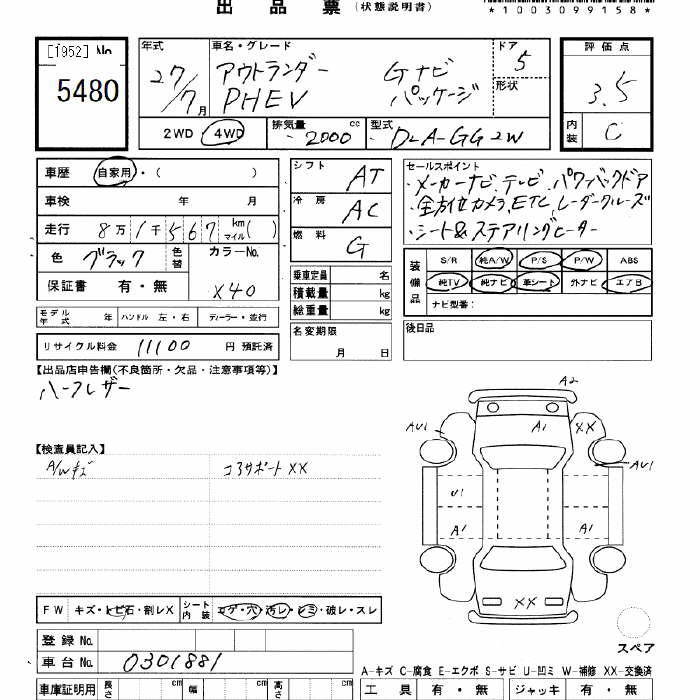 出品票 (状態説明書)
*1003099158*
[1952] No
5480
年式 27/7月
車名・グレード
アウトランダー Gナビ
PHEV パッケージ
ドア 5
形状
評価点
3.5
内装 C
2WD 4WD 排気量 2000 cc 型式 DLA-GG2W
車歴 自家用・( )
車検 年 月
走行 8万1千567 km マイル( )
色 ブラック 色替 カラーNo. X40
保証書 有・無
モデル年式 年 ハンドル 左・右 ディーラー・並行
リサイクル料金 11100 円 預託済
シフト AT
冷房 AC
燃料 G
乗車定員 名
積載量 kg
総重量 kg
名変期限
月 日
セールスポイント
・メーカーナビ,テレビ,パワーバックドア
・全方位カメラ,ETC,レーダークルーズ
・シート&ステアリングヒーター
装備品
S/R 純A/W P/S P/W ABS
純TV 純ナビ 革シート 外ナビ エアB
ナビ型番:
後日品
【出品店申告欄(不良箇所・欠品・注意事項等)】
ハーフレザー
【検査員記入】
A/Wキズ コアサポートXX
A2
AU1 A1 XX
AU1
U1
A1 A1
XX
スペア
FW キズ・トビ石・割レX シート内装 コゲ・穴・汚レ・シミ・破レ・スレ
登録No.
車台No. 0301881
A-キズ C-腐食 E-エクボ S-サビ U-凹ミ W-補修 XX-交換済
車庫証明用 長さ cm 幅 cm 高さ cm 工具 有・無 ジャッキ 有・無